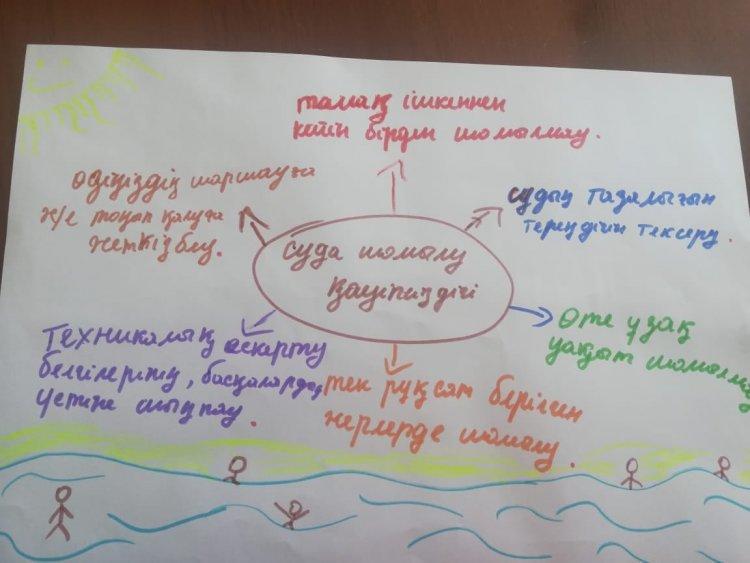 тамақ ішкеннен
кейін бірден шомылмау.
өзіңіздің шаршауға
ж/е тоңып қалуға
жеткізбеу.
судың тазалығын
тереңдігін тексеру.
суда шомылу
қауіпсіздігі
Өте ұзақ
уақыт
Техникалық ескерту
белгілерінің, басқалардың
үстіне шықпау.
тек рұқсат берілген
жерлерде шомылу.